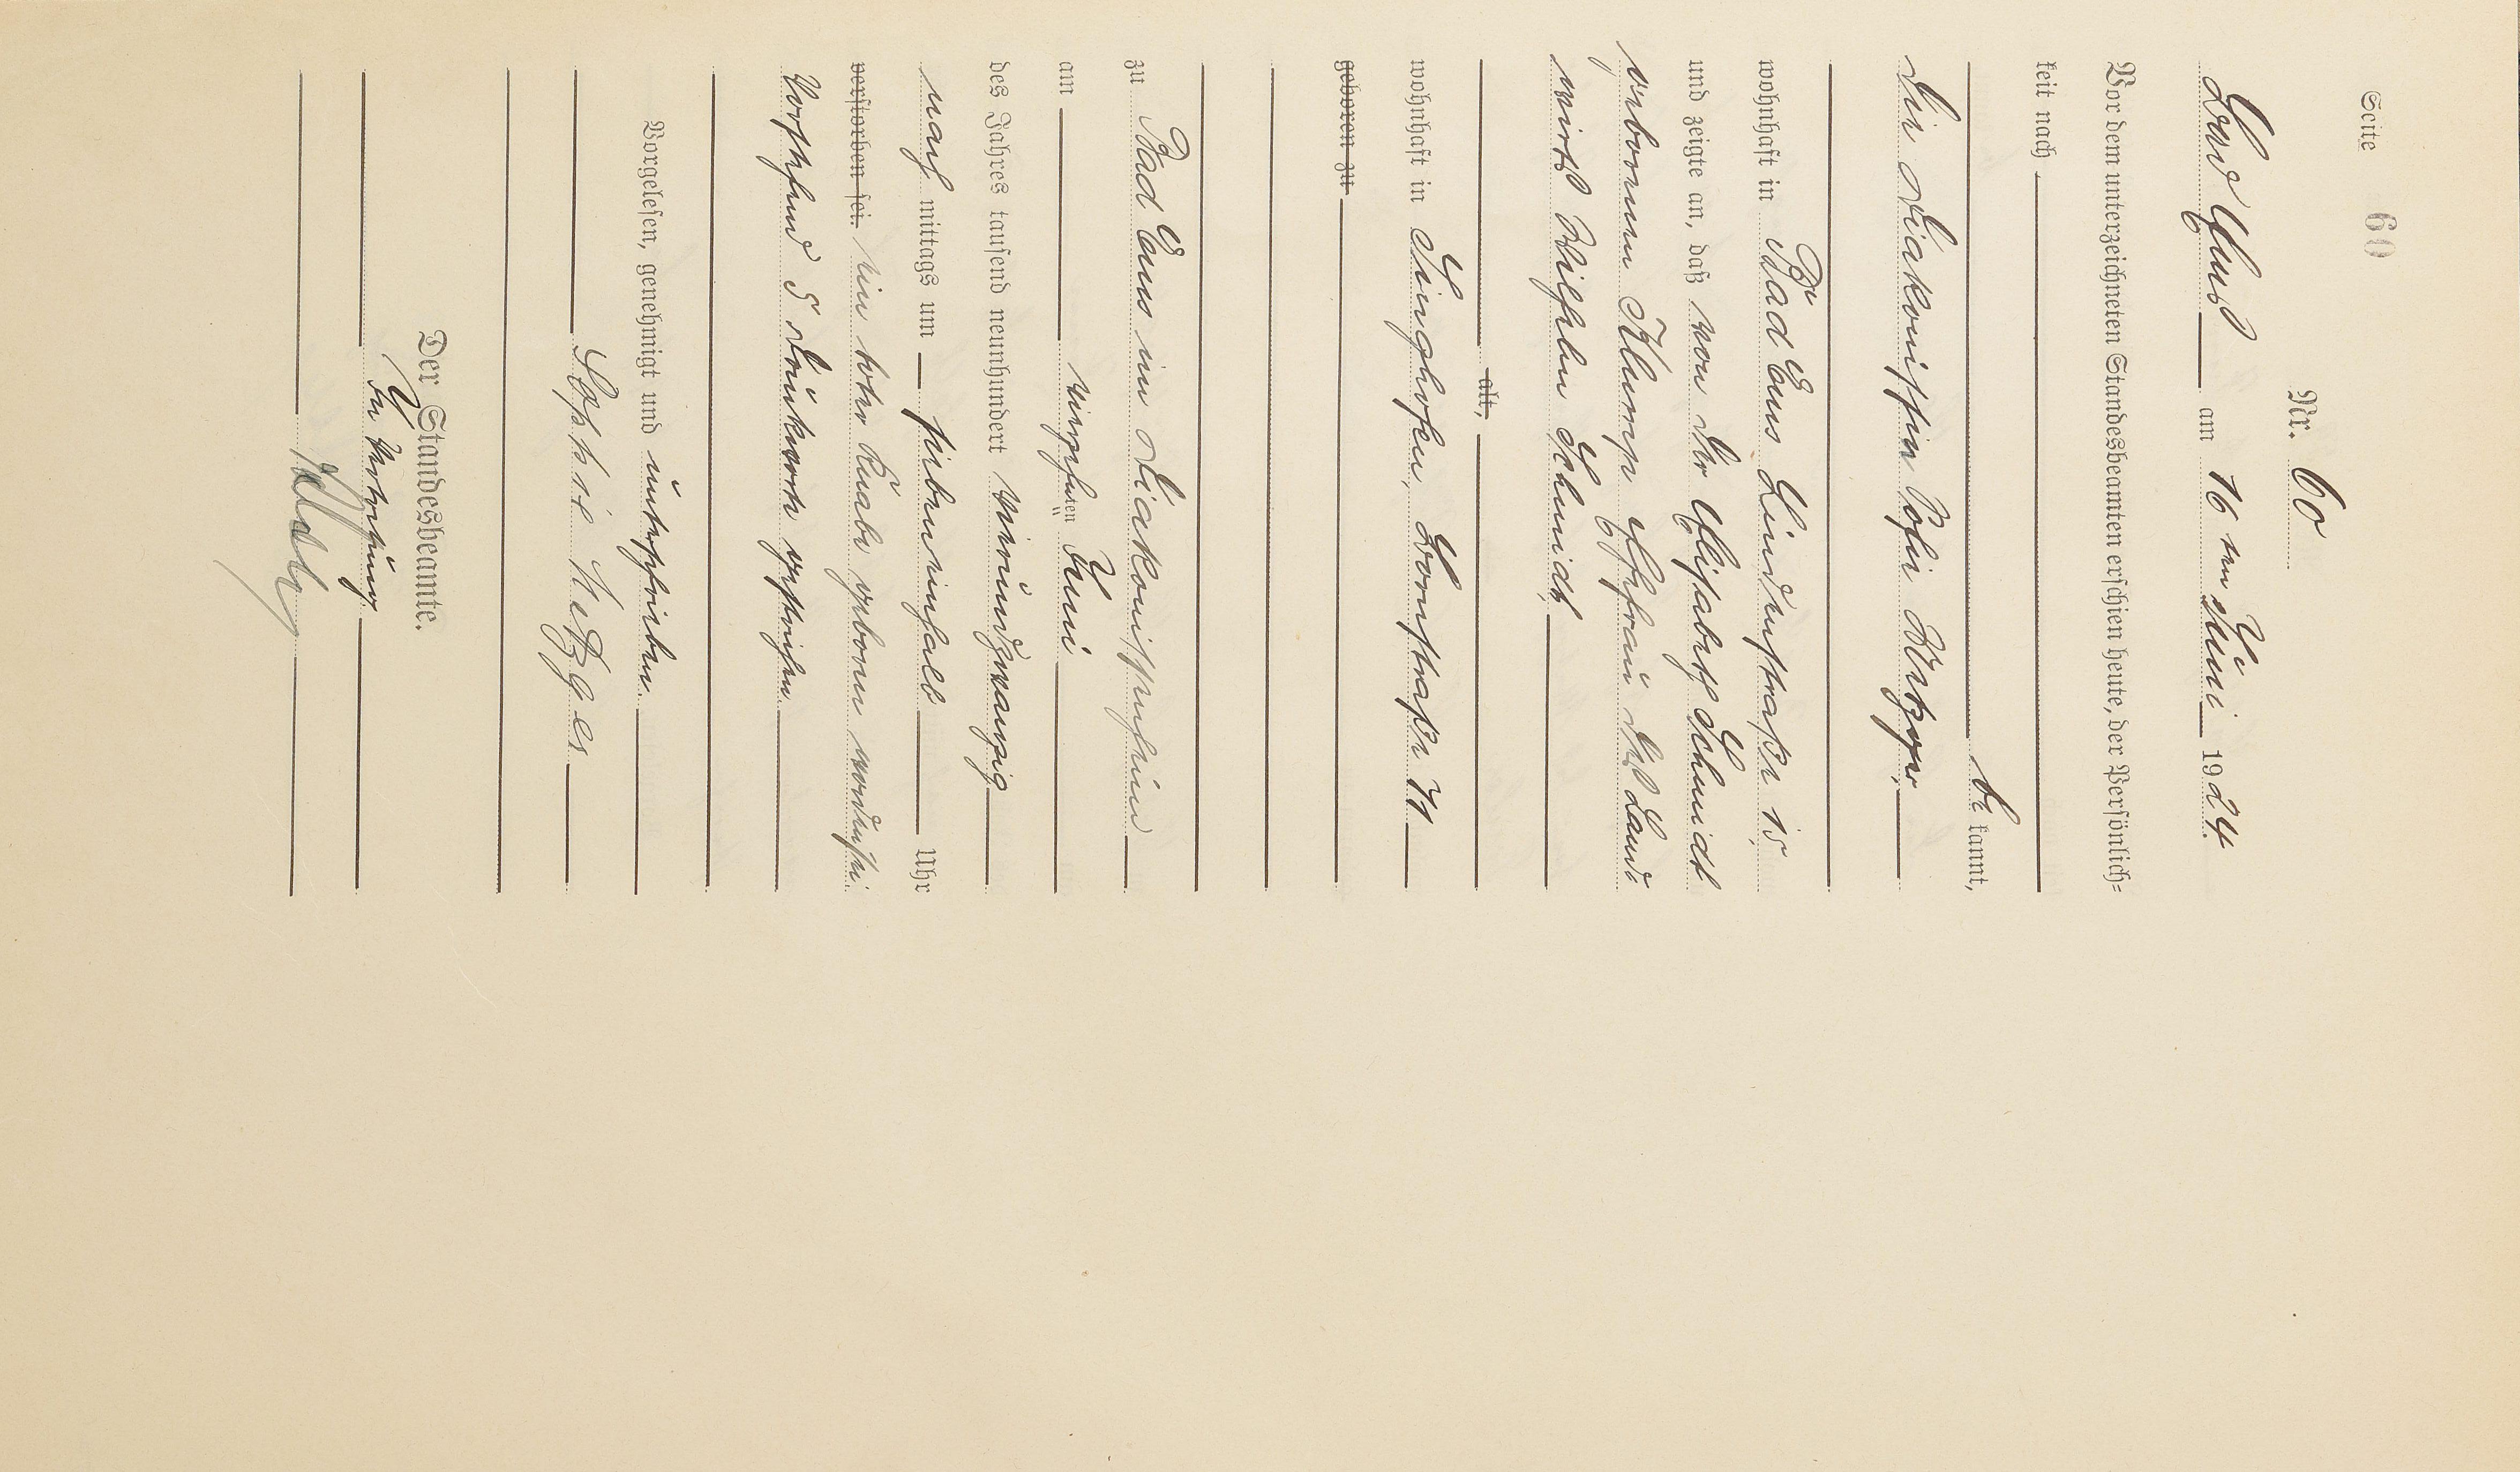 Seite 60
Nr. 60
Bad Ems am 16 ten Juni 1924.
Vor dem unterzeichneten Standesbeamten erschien heute, der Persönlich=
keit nach
be kannt,
die Diakonissin Sofie Metzger,
wohnhaft in Bad Ems Lindenstraße 15,
und zeigte an, daß von der Elisabeth Schmidt
geborenen Klump Ehefrau des Land-
wirts Wilhelm Schmidt,
alt,
wohnhaft in Singhofen,
geboren zu
zu Bad Ems im Diakonissenheim
am vierzehn ten Juni
des Jahres tausend neunhundert vierundzwanzig
nach mittags um siebeneinhalb Uhr
verstorben sei. ein toter Knabe geboren worden sei.
Vorstehend 5 Druckworte gestrichen.
Vorgelesen, genehmigt und unterschrieben.
Sophie Metzger
Der Standesbeamte.
In Vertretung